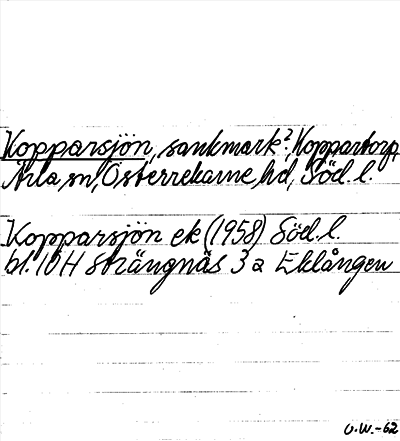 Kopparsjön, sankmark?, Koppartorp,
Ärla sn, Österrekarne hd, Söd. l.
Kopparsjön ek (1958) Söd. l.
bl. 10H Strängnäs 3a Eklången
O.W.-62